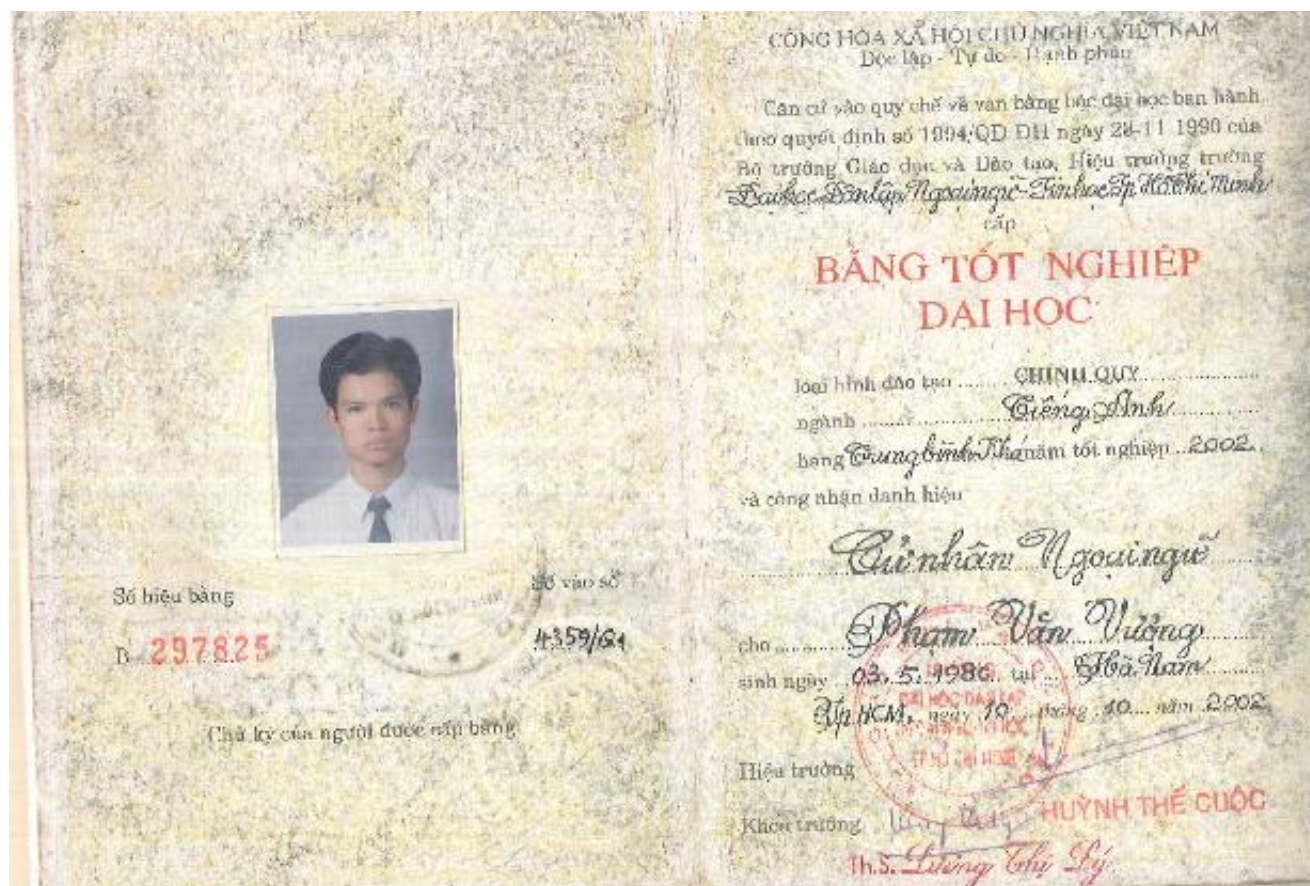 Số hiệu bằng
B 297825
Số vào sổ
4359/G1
Chữ ký của người được cấp bằng
CỘNG HÒA XÃ HỘI CHỦ NGHĨA VIỆT NAM
Độc lập - Tự do - Hạnh phúc
Căn cứ vào quy chế về văn bằng bậc đại học ban hành
theo quyết định số 1994/QD ĐH ngày 23-11 1990 của
Bộ trưởng Giáo dục và Đào tạo, Hiệu trưởng trường
Đại học Dân lập Ngoại ngữ - Tin học Tp Hồ Chí Minh
cấp
BẰNG TỐT NGHIỆP
ĐẠI HỌC
loại hình đào tạo CHÍNH QUY
ngành Tiếng Anh
hạng Trung bình Khá năm tốt nghiệp 2002
và công nhận danh hiệu
Cử nhân Ngoại ngữ
cho Phạm Văn Vượng
sinh ngày 03.5.1980 tại Hà Nam
Tp HCM, ngày 10 tháng 10 năm 2002
ĐẠI HỌC DÂN LẬP
TP HỒ CHÍ MINH
Hiệu trưởng
HUỲNH THẾ CUỘC
Khoa trưởng
Th.S. Lương Thị Lý